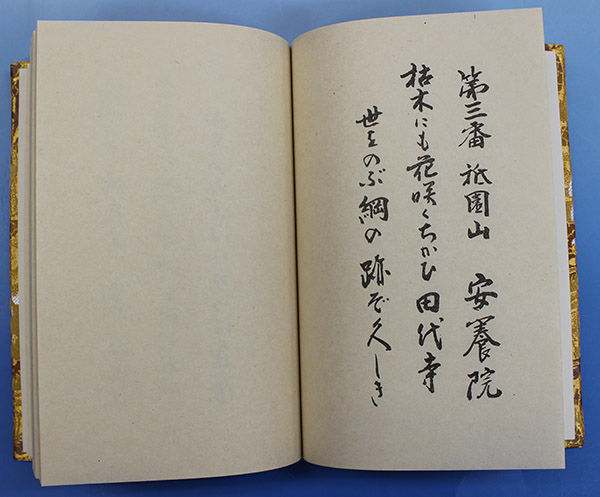 第三番 祇園山 安養院
枯木にも花咲くちかひ田代寺
世をのぶ綱の跡ぞ久しき